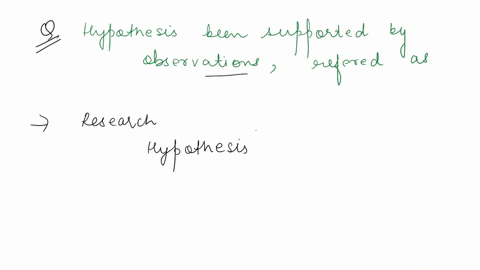 Q Hypothesis been supported by
observations, refered as
→ Research
Hypothesis